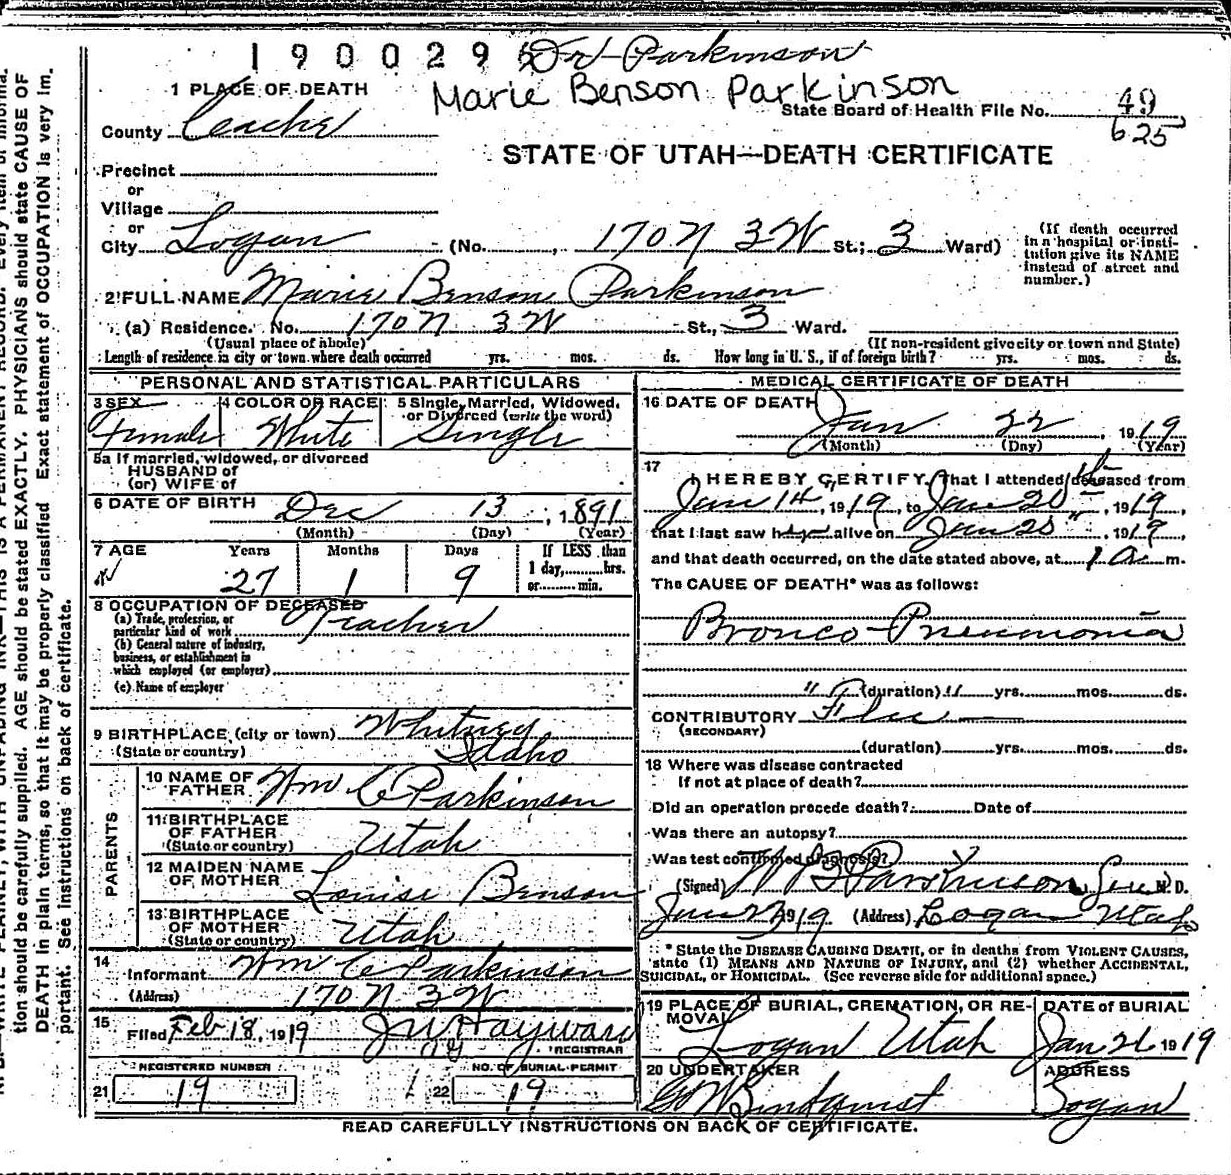 190029
Dr Parkinson
Marie Benson Parkinson
1 PLACE OF DEATH
State Board of Health File No. 49
625
County Cache
STATE OF UTAH—DEATH CERTIFICATE
Precinct
or
Village
or
City Logan (No. 170 N 3 W St.; 3 Ward)
(If death occurred in a hospital or institution give its NAME instead of street and number.)
2 FULL NAME Marie Benson Parkinson
(a) Residence. No. 170 N 3 W St., 3 Ward.
(Usual place of abode) (If non-resident give city or town and State)
Length of residence in city or town where death occurred yrs. mos. ds. How long in U. S., if of foreign birth? yrs. mos. ds.
PERSONAL AND STATISTICAL PARTICULARS
3 SEX 4 COLOR OR RACE 5 Single, Married, Widowed, or Divorced (write the word)
Female White Single
5a If married, widowed, or divorced
HUSBAND of
(or) WIFE of
6 DATE OF BIRTH Dec 13, 1891
(Month) (Day) (Year)
7 AGE Years Months Days If LESS than
1 day, hrs.
or min.
27 1 9
8 OCCUPATION OF DECEASED
(a) Trade, profession, or
particular kind of work Teacher
(b) General nature of industry,
business, or establishment in
which employed (or employer)
(c) Name of employer
9 BIRTHPLACE (city or town) Whitney
(State or country) Idaho
PARENTS
10 NAME OF FATHER Wm C Parkinson
11 BIRTHPLACE OF FATHER
(State or country) Utah
12 MAIDEN NAME OF MOTHER Louise Benson
13 BIRTHPLACE OF MOTHER
(State or country) Utah
14
Informant Wm C Parkinson
(Address) 170 N 3 W
15
Filed Feb 18, 1919 J W Hayward
REGISTRAR
REGISTERED NUMBER NO. OF BURIAL PERMIT
21 19 22 19
MEDICAL CERTIFICATE OF DEATH
16 DATE OF DEATH
Jan 22, 1919
(Month) (Day) (Year)
17
I HEREBY CERTIFY, That I attended deceased from
Jan 14, 1919, to Jan 20, 1919
that I last saw h alive on Jan 20, 1919
and that death occurred, on the date stated above, at 1 a m.
The CAUSE OF DEATH* was as follows:
Bronco-Pneumonia
(duration) yrs. mos. ds.
CONTRIBUTORY Flu
(SECONDARY)
(duration) yrs. mos. ds.
18 Where was disease contracted
If not at place of death?
Did an operation precede death? Date of
Was there an autopsy?
Was test confirmed diagnosis?
(Signed) W B Parkinson M. D.
1919 (Address) Logan Utah
* State the DISEASE CAUSING DEATH, or in deaths from VIOLENT CAUSES,
state (1) MEANS AND NATURE OF INJURY, and (2) whether ACCIDENTAL,
SUICIDAL, or HOMICIDAL. (See reverse side for additional space.)
19 PLACE OF BURIAL, CREMATION, OR REMOVAL DATE OF BURIAL
Logan Utah Jan 1919
20 UNDERTAKER ADDRESS
Lindquist Logan
READ CAREFULLY INSTRUCTIONS ON BACK OF CERTIFICATE.
tion should be carefully supplied. AGE should be stated EXACTLY. PHYSICIANS should state CAUSE OF
DEATH in plain terms, so that it may be properly classified. Exact statement of OCCUPATION is very im-
portant. See instructions on back of certificate.